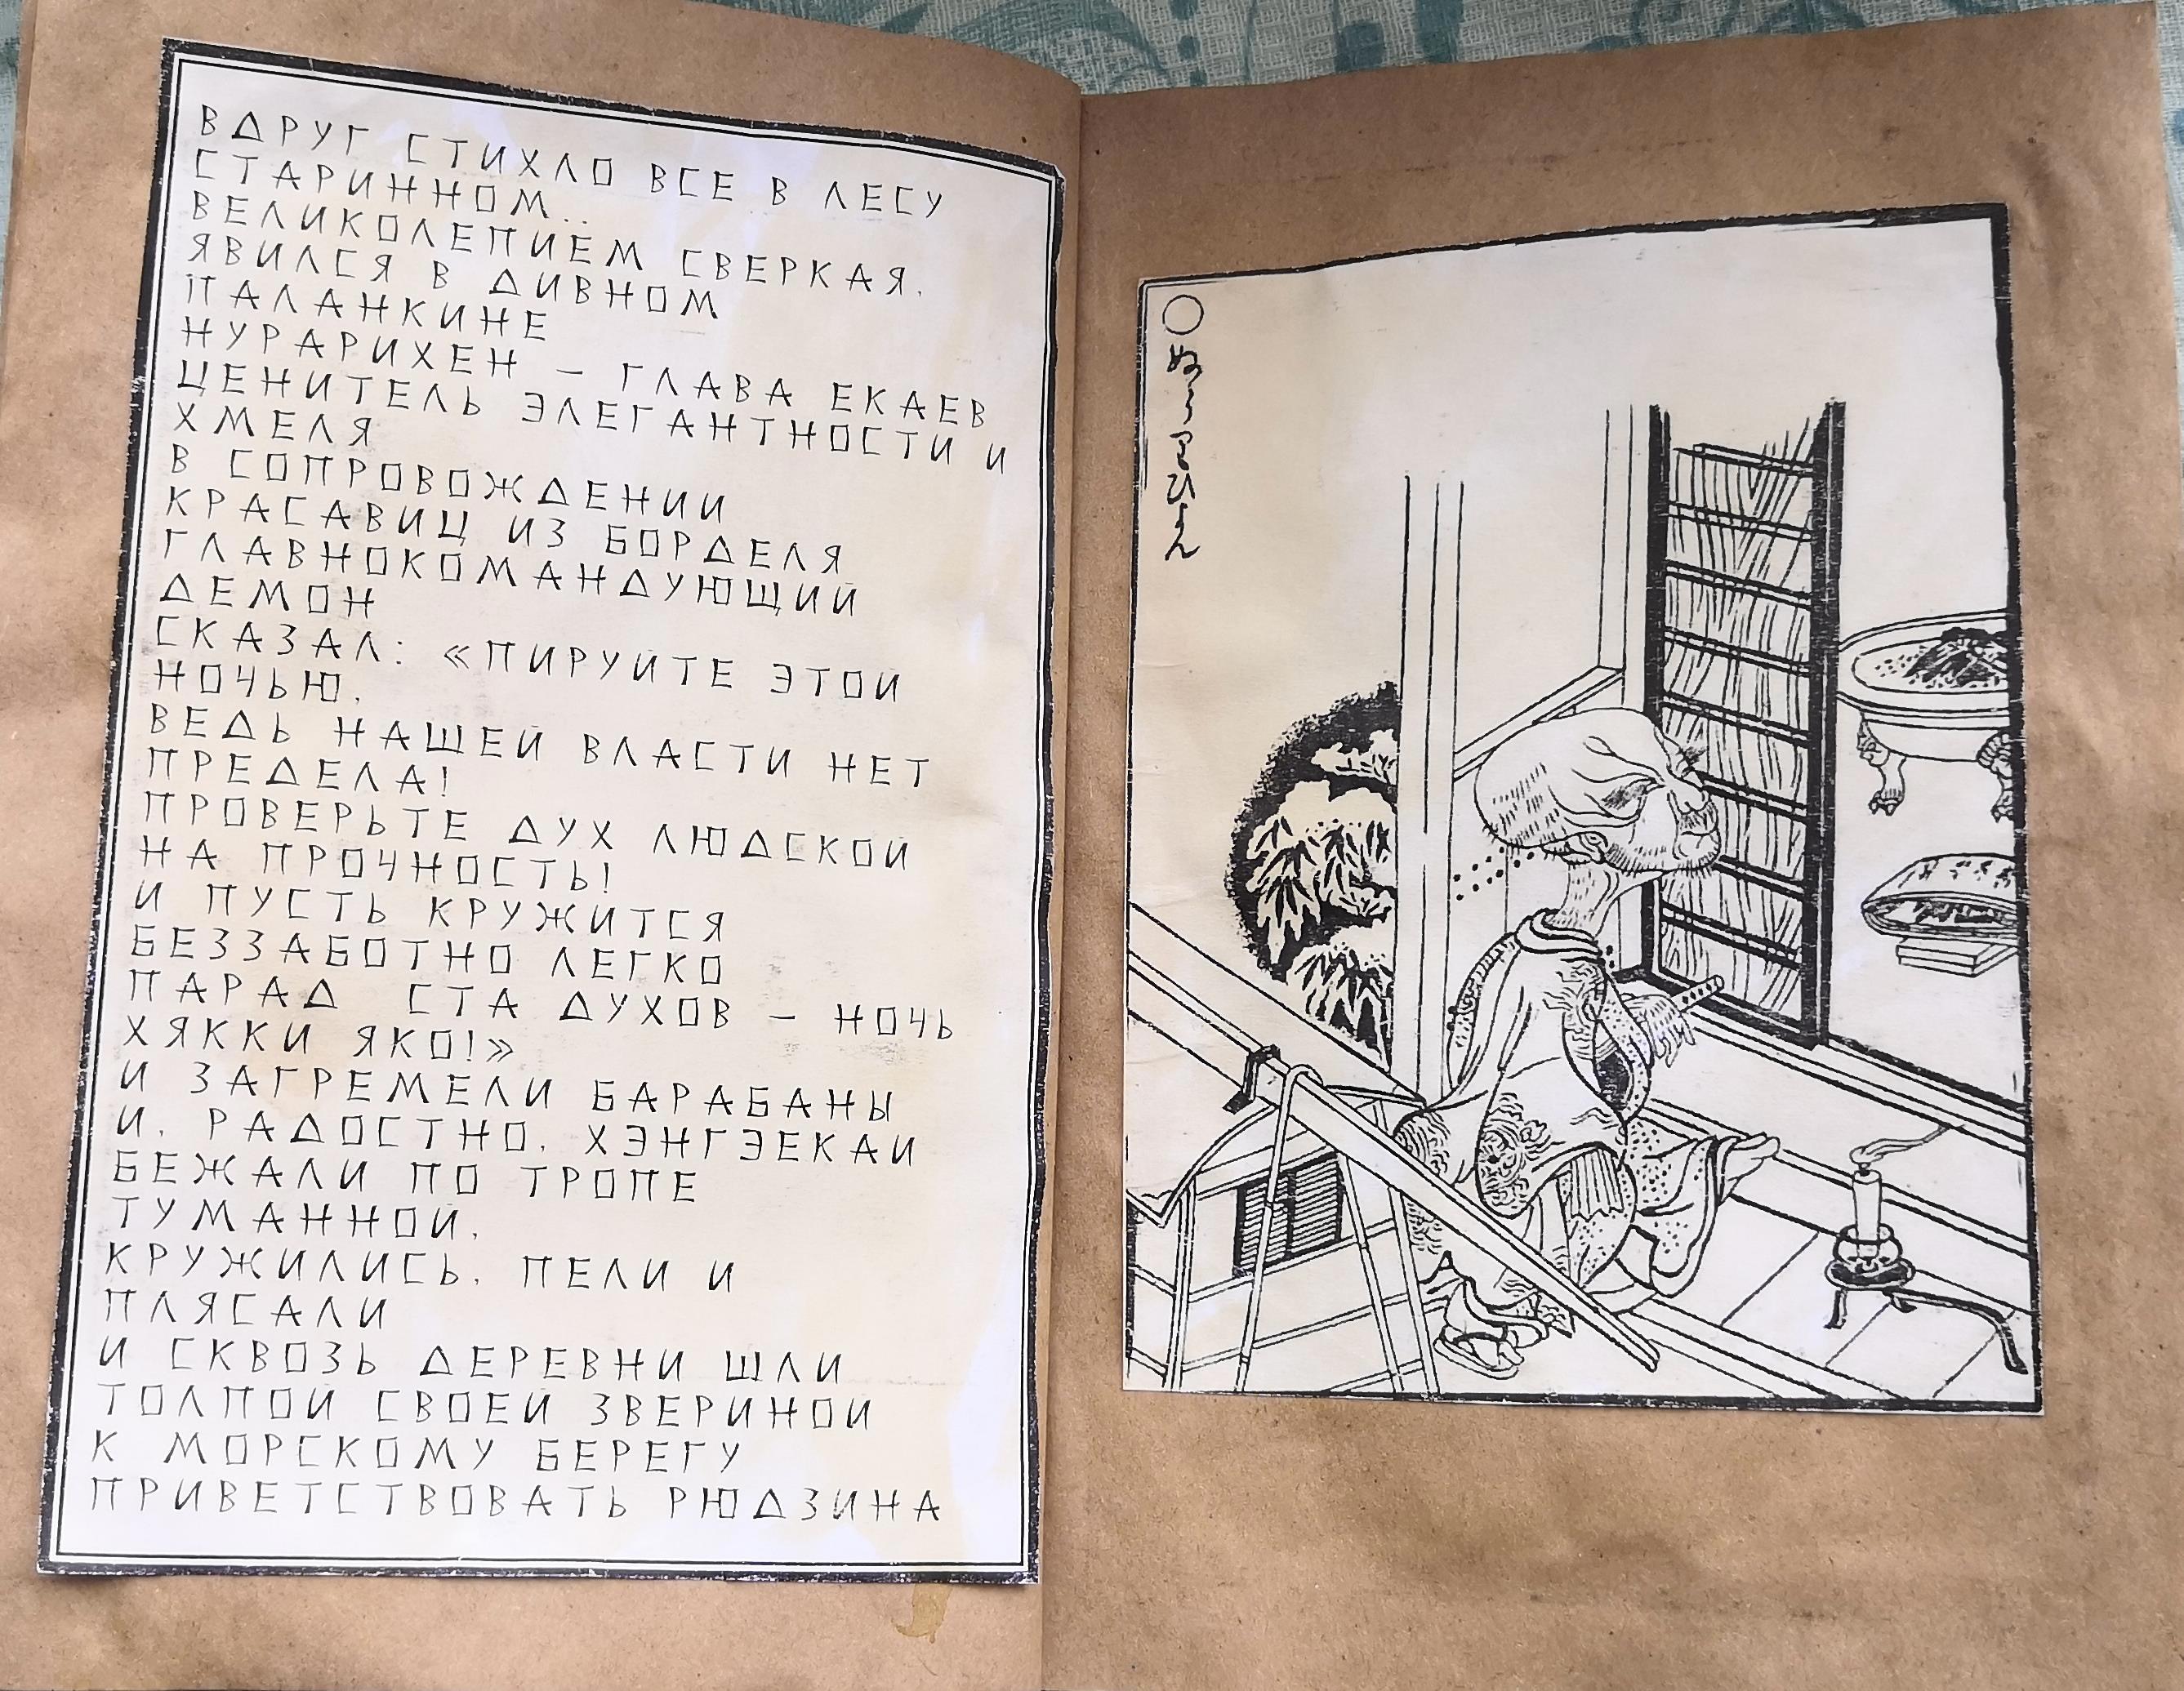 ВДРУГ СТИХЛО ВСЕ В ЛЕСУ
СТАРИННОМ..
ВЕЛИКОЛЕПИЕМ СВЕРКАЯ,
ЯВИЛСЯ В ДИВНОМ
ПАЛАНКИНЕ
НУРАРИХЕН – ГЛАВА ЕКАЕВ
ЦЕНИТЕЛЬ ЭЛЕГАНТНОСТИ И
ХМЕЛЯ
В СОПРОВОЖДЕНИИ
КРАСАВИЦ ИЗ БОРДЕЛЯ
ГЛАВНОКОМАНДУЮЩИЙ
ДЕМОН
СКАЗАЛ: «ПИРУЙТЕ ЭТОЙ
НОЧЬЮ,
ВЕДЬ НАШЕЙ ВЛАСТИ НЕТ
ПРЕДЕЛА!
ПРОВЕРЬТЕ ДУХ ЛЮДСКОЙ
НА ПРОЧНОСТЬ!
И ПУСТЬ КРУЖИТСЯ
БЕЗЗАБОТНО ЛЕГКО
ПАРАД СТА ДУХОВ – НОЧЬ
ХЯККИ ЯКО!»
И ЗАГРЕМЕЛИ БАРАБАНЫ
И, РАДОСТНО, ХЭНГЭЕКАИ
БЕЖАЛИ ПО ТРОПЕ
ТУМАННОЙ,
КРУЖИЛИСЬ, ПЕЛИ И
ПЛЯСАЛИ
И СКВОЗЬ ДЕРЕВНИ ШЛИ
ТОЛПОЙ СВОЕЙ ЗВЕРИНОЙ
К МОРСКОМУ БЕРЕГУ
ПРИВЕТСТВОВАТЬ РЮДЗИНА
○ぬらりひよん